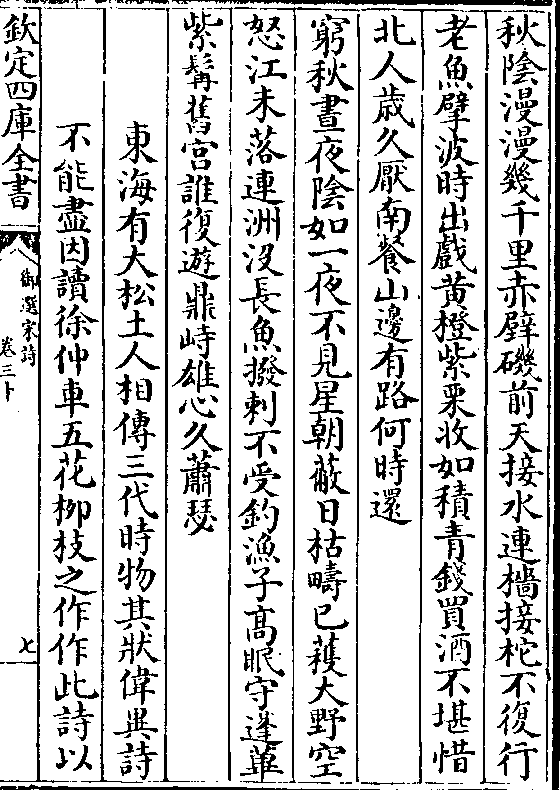 秋陰漫漫幾千里赤壁磯前天接水連檣接柁不復行
老魚擘波時出戲黄橙紫栗收如積青錢買酒不堪惜
北人歳久厭南餐山邊有路何時還
窮秋晝夜陰如一夜不見星朝蔽日枯疇已蒦大野空
怒江未落連洲没長魚撥剌不受釣漁子髙眠守蓬蓽
紫髯舊宫誰復遊鼎峙雄心久蕭瑟
東海有大松土人相傳三代時物其狀偉異詩
不能盡因讀徐仲車五花栁枝之作作此詩以
欽定四庫全書
御選宋詩
卷三十
七